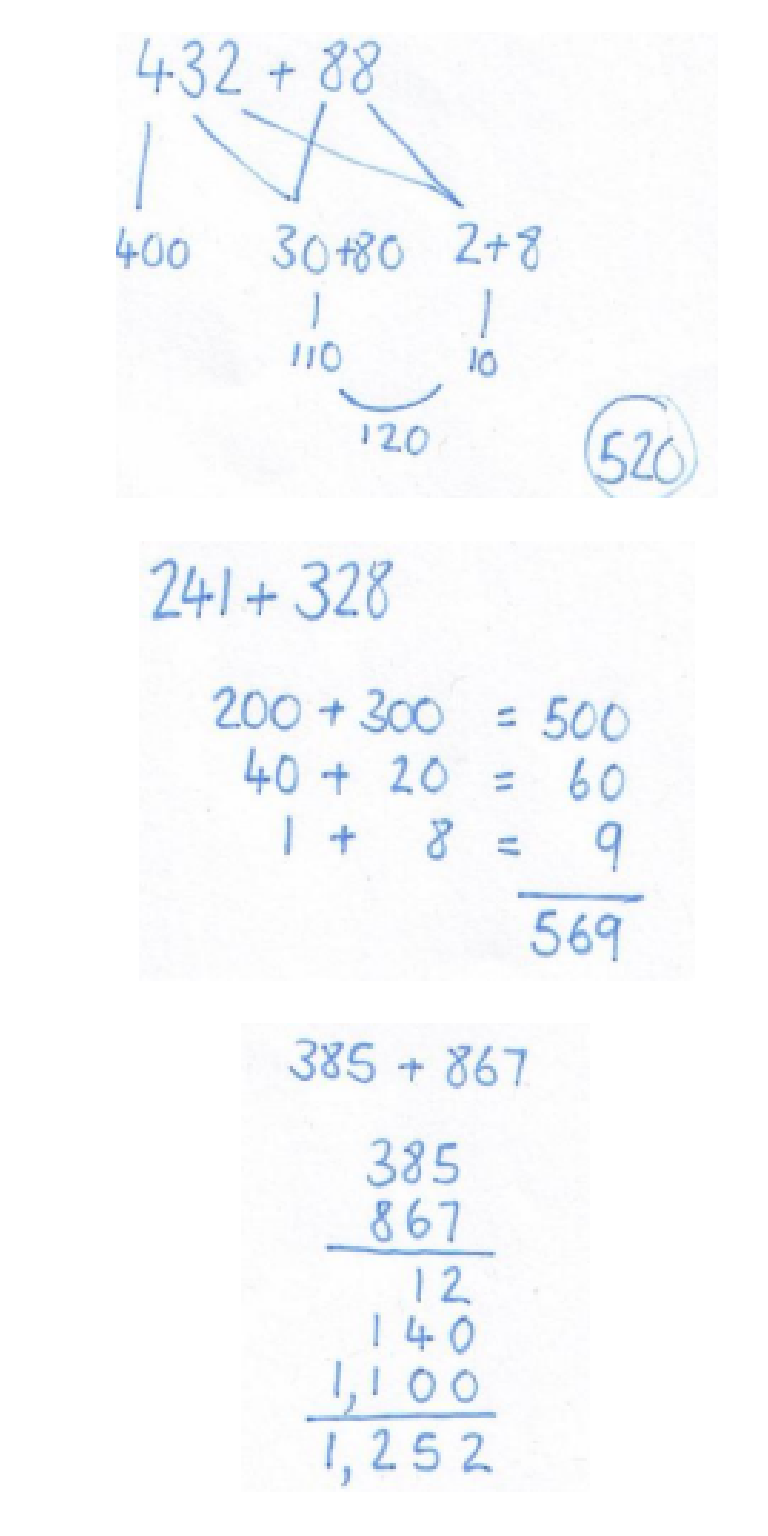 432 + 88
400 30+80 2+8
110 10
120
520
241 + 328
200 + 300 = 500
40 + 20 = 60
1 + 8 = 9
569
385 + 867
385
867
12
140
1,100
1,252